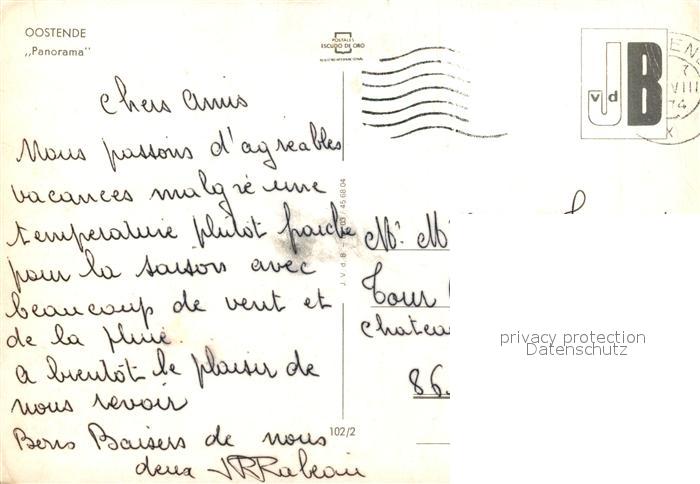 OOSTENDE
„Panorama"
POSTALES
ESCUDO DE ORO
REGISTRO INTERNACIONAL
JB
v d
VIII
74
X
Chers Amis
Nous passons d'agréables
vacances malgré une
température plutôt fraiche
pour la saison avec
beaucoup de vent et
de la pluie.
A bientôt le plaisir de
nous revoir
Bons Baisers de nous
deux
J.V.d.B.
45 68 04
102/2
Mr. M
Tour
chatea
86.
privacy protection
Datenschutz